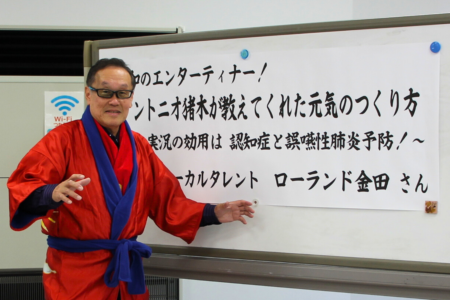 Wi-Fi
和のエンターティナー!
ントニオ猪木が教えてくれた元気のつくり方
実況の効用は 認知症と誤嚥性肺炎予防!～
ーカルタレント ローランド金田 さん